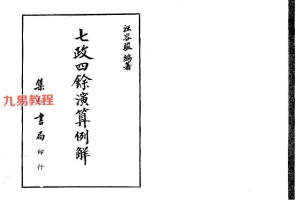 汪容駸編著
七政四餘演算例解
集文書局印行
九易教程
jy93.com